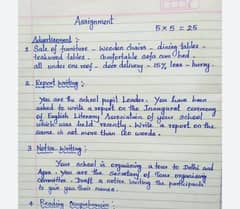 Assignment
5 x 5 = 25
Advertisement :
1. Sale of furniture - wooden chairs - dining tables -
teakwood tables - comfortable sofa cum bed -
all under one roof - door delivery - 15% less - hurry.
2. Report Writing :
You are the school pupil Leader. You have been
asked to write a report on the Inaugural ceremony
of English Literary Association of your school
which was held recently. Write a report on the
same in not more than 100 words.
3 Notice Writing :
Your school is organising a tour to Delhi and
Agra. You are the Secretary of Tours organising
committee. Draft a notice inviting the participants
to give you their names.
4 Reading Comprehension :